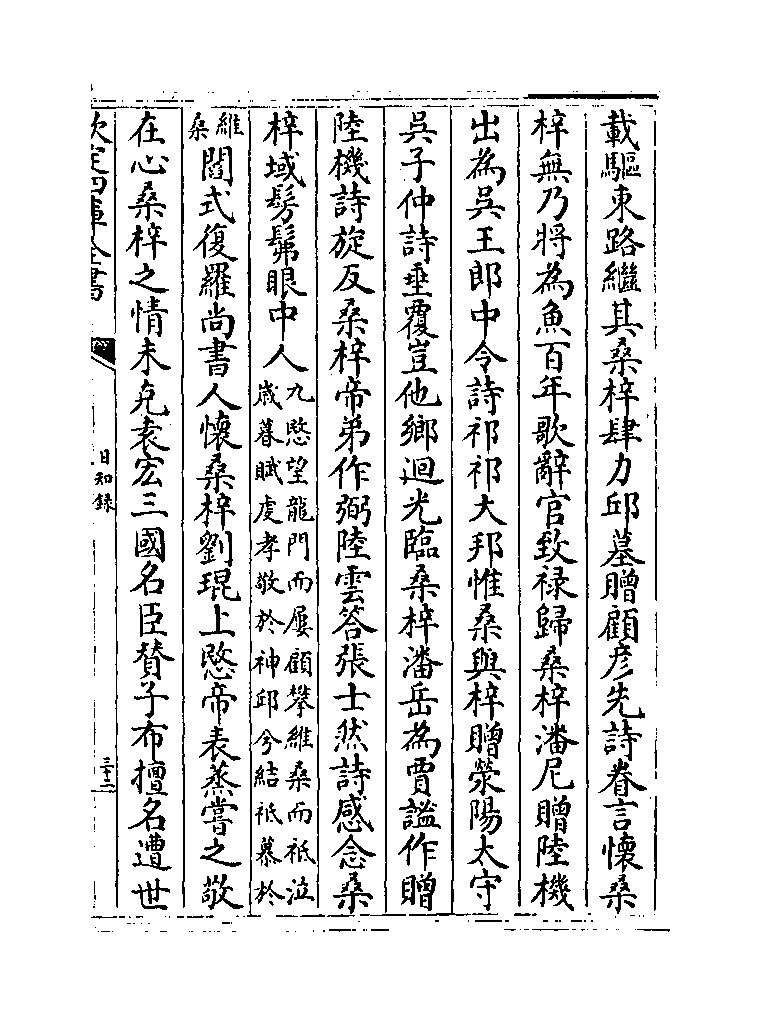 載驅東路繼其桑梓肆力邱墓贈顧彦先詩眷言懷桑
梓無乃將為魚百年歌辭官致禄歸桑梓潘尼贈陸機
出為吳王郎中令詩祁祁大邦惟桑與梓贈滎陽太守
吳子仲詩垂覆豈他鄉迴光臨桑梓潘岳為賈謐作贈
陸機詩旋反桑梓帝弟作弼陸雲答張士然詩感念桑
梓域髣髴眼中人
九愍望龍門而屢顧攀維桑而祗泣
歲暮賦虔孝敬於神邱兮結祗慕於
維
桑
閻式復羅尚書人懷桑梓劉琨上愍帝表蒸嘗之敬
在心桑梓之情未克袁宏三國名臣賛子布擅名遭世
欽定四庫全書
日知錄
三十二